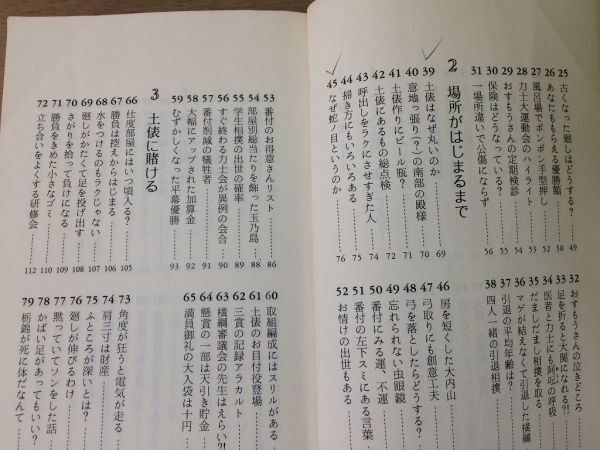 25 古くなった廻しはどうする？……49
26 あなたももらえる優勝額……50
27 風呂場でポンポン手型押し……52
28 力士大運動会のハイライト……53
29 おすもうさんの定期検診……54
30 保険はどうなっている？……55
31 一場所違いで公傷にならず……56
32 おすもうさんの泣きどころ
33 足を折ると大関になれる?!
34 医者と力士にも阿吽の呼吸
35 だましだまし相撲を取る
36 マゲが結えなくて引退した横綱
37 引退の平均年齢は？
38 四人一緒の引退相撲
2 場所がはじまるまで
39 土俵はなぜ丸いのか……69
40 意地っ張り（？）の南部の殿様……70
41 土俵作りにビール瓶？……71
42 土俵にあるもの総点検……72
43 呼出しをラクにさせすぎた人……74
44 掃き方にもいろいろある……75
45 なぜ蛇ノ目というのか……76
46 房を短くした大内山
47 弓取りにも創意工夫
48 弓を落としたらどうする？
49 忘れられない虫眼鏡
50 番付にみる運、不運
51 番付の左下スミにある言葉
52 お情けの出世もある
53 番付のお得意さんリスト……86
54 部屋別総当たりを飾った玉乃島……88
55 学生相撲の出世の確率……89
56 すぐ終わる力士会が異例の会合……90
57 番付削減の犠牲者……91
58 大幅にアップされた加算金……92
59 むずかしくなった平幕優勝……93
60 取組編成にはスリルがある
61 土俵のお目付役登場
62 三賞の記録アラカルト
63 横綱審議会の先生はえらい?!
64 懸賞の一部は天引き貯金
65 満員御礼の大入袋は十円
3 土俵に賭ける
66 仕度部屋にはいつ頃入る？……105
67 勝負は控えからはじまる……106
68 水をつけるのもラクじゃない……107
69 廻しがかたくて足を投げ出す……108
70 さがりを拾って負けになる……109
71 勝負をきめた小さなゴミ……110
72 立ち合いをよくする研修会……112
73 角度が狂うと電気が走る
74 肩三寸は財産
75 ふところが深いとは？
76 廻しが伸びるわけ
77 黙っていてソンをした話
78 かばい足があってもいい？
79 栃錦が死に体だなんて